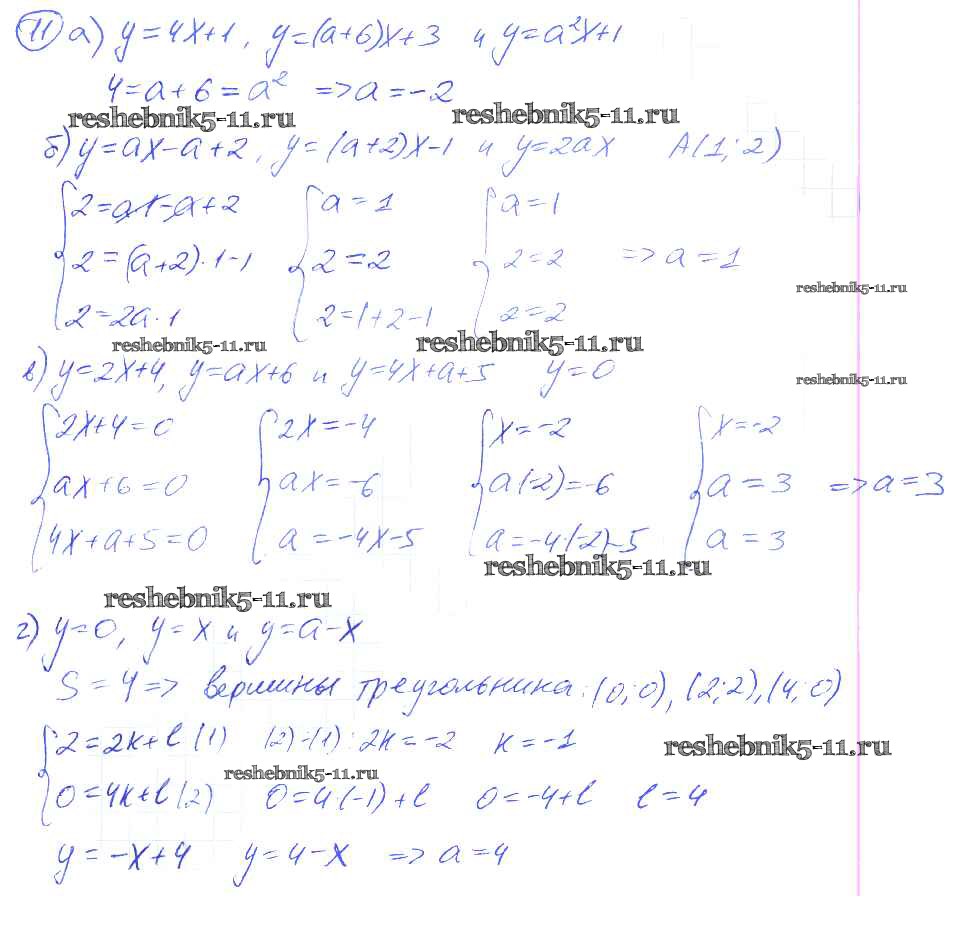 11 а) y=4x+1, y=(a+6)x+3 и y=a²x+1
4=a+6=a² => a=-2
reshebnik5-11.ru reshebnik5-11.ru
б) y=ax-a+2, y=(a+2)x-1 и y=2ax A(1;2)
2=a·1-a+2 a=1 a=1
2=(a+2)·1-1 2=2 2=2 => a=1
reshebnik5-11.ru
2=2a·1 2=1+2-1 2=2
reshebnik5-11.ru reshebnik5-11.ru
в) y=2x+4, y=ax+6 и y=4x+a+5 y=0
reshebnik5-11.ru
2x+4=0 2x=-4 x=-2 x=-2
ax+6=0 ax=-6 a(-2)=-6 a=3 => a=3
4x+a+5=0 a=-4x-5 a=-4·(-2)-5 a=3
reshebnik5-11.ru
reshebnik5-11.ru
г) y=0, y=x и y=a-x
S=4 => вершины треугольника: (0;0), (2;2), (4;0)
2=2k+l (1) (2)-(1): 2k=-2 k=-1
reshebnik5-11.ru
reshebnik5-11.ru
0=4k+l (2) 0=4·(-1)+l 0=-4+l l=4
y=-x+4 y=4-x => a=4